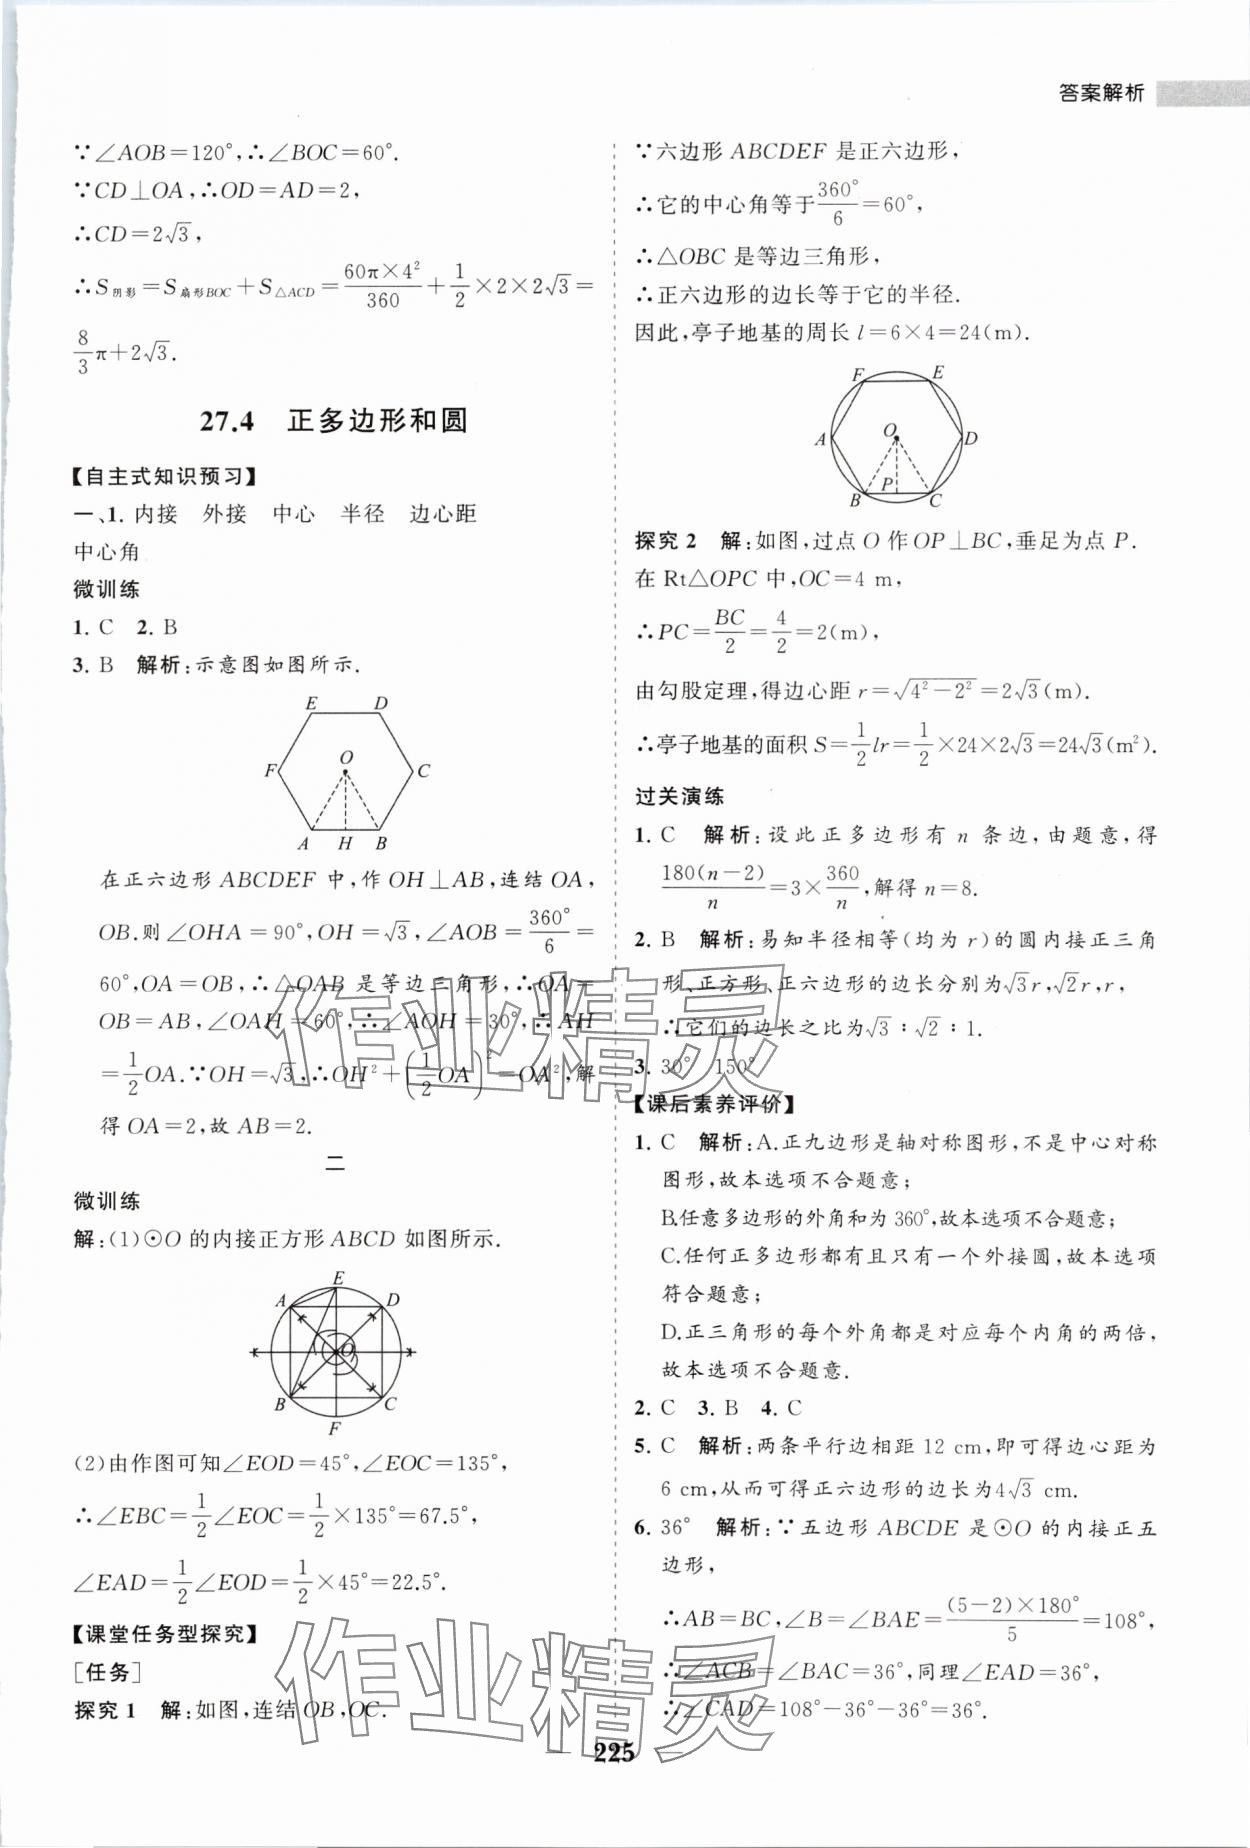 答案解析
∵∠AOB=120°,∴∠BOC=60°.
∵CD⊥OA,∴OD=AD=2,
∴CD=2√3,
∴S阴影=S扇形BOC+S△ACD=60π×4²/360+1/2×2×2√3=
8/3π+2√3.
27.4 正多边形和圆
【自主式知识预习】
一、1. 内接 外接 中心 半径 边心距
中心角
微训练
1. C 2. B
3. B 解析:示意图如图所示.
E D
F O C
A H B
在正六边形 ABCDEF 中,作 OH⊥AB,连结 OA,
OB.则∠OHA=90°,OH=√3,∠AOB=360°/6=
60°,OA=OB,∴△OAB 是等边三角形,∴OA=
OB=AB,∠OAH=60°,∴∠AOH=30°,∴AH
=1/2OA.∵OH=√3,∴OH²+(1/2OA)²=OA²,解
得 OA=2,故 AB=2.
二
微训练
解:(1)⊙O 的内接正方形 ABCD 如图所示.
E
A D
O
B C
F
(2)由作图可知∠EOD=45°,∠EOC=135°,
∴∠EBC=1/2∠EOC=1/2×135°=67.5°,
∠EAD=1/2∠EOD=1/2×45°=22.5°.
【课堂任务型探究】
[任务]
探究 1 解:如图,连结 OB,OC.
∵六边形 ABCDEF 是正六边形,
∴它的中心角等于360°/6=60°,
∴△OBC 是等边三角形,
∴正六边形的边长等于它的半径.
因此,亭子地基的周长 l=6×4=24(m).
F E
A O D
B P C
探究 2 解:如图,过点 O 作 OP⊥BC,垂足为点 P.
在 Rt△OPC 中,OC=4 m,
∴PC=BC/2=4/2=2(m),
由勾股定理,得边心距 r=√(4²-2²)=2√3(m).
∴亭子地基的面积 S=1/2lr=1/2×24×2√3=24√3(m²).
过关演练
1. C 解析:设此正多边形有 n 条边,由题意,得
180(n-2)/n=3×360/n,解得 n=8.
2. B 解析:易知半径相等(均为 r)的圆内接正三角
形、正方形、正六边形的边长分别为√3r,√2r,r,
∴它们的边长之比为√3∶√2∶1.
3. 30° 150°
【课后素养评价】
1. C 解析:A.正九边形是轴对称图形,不是中心对称
图形,故本选项不合题意;
B.任意多边形的外角和为 360°,故本选项不合题意;
C.任何正多边形都有且只有一个外接圆,故本选项
符合题意;
D.正三角形的每个外角都是对应每个内角的两倍,
故本选项不合题意.
2. C 3. B 4. C
5. C 解析:两条平行边相距 12 cm,即可得边心距为
6 cm,从而可得正六边形的边长为4√3 cm.
6. 36° 解析:∵五边形 ABCDE 是⊙O 的内接正五
边形,
∴AB=BC,∠B=∠BAE=(5-2)×180°/5=108°,
∴∠ACB=∠BAC=36°,同理∠EAD=36°,
∴∠CAD=108°-36°-36°=36°.
作业精灵
作业精灵
225